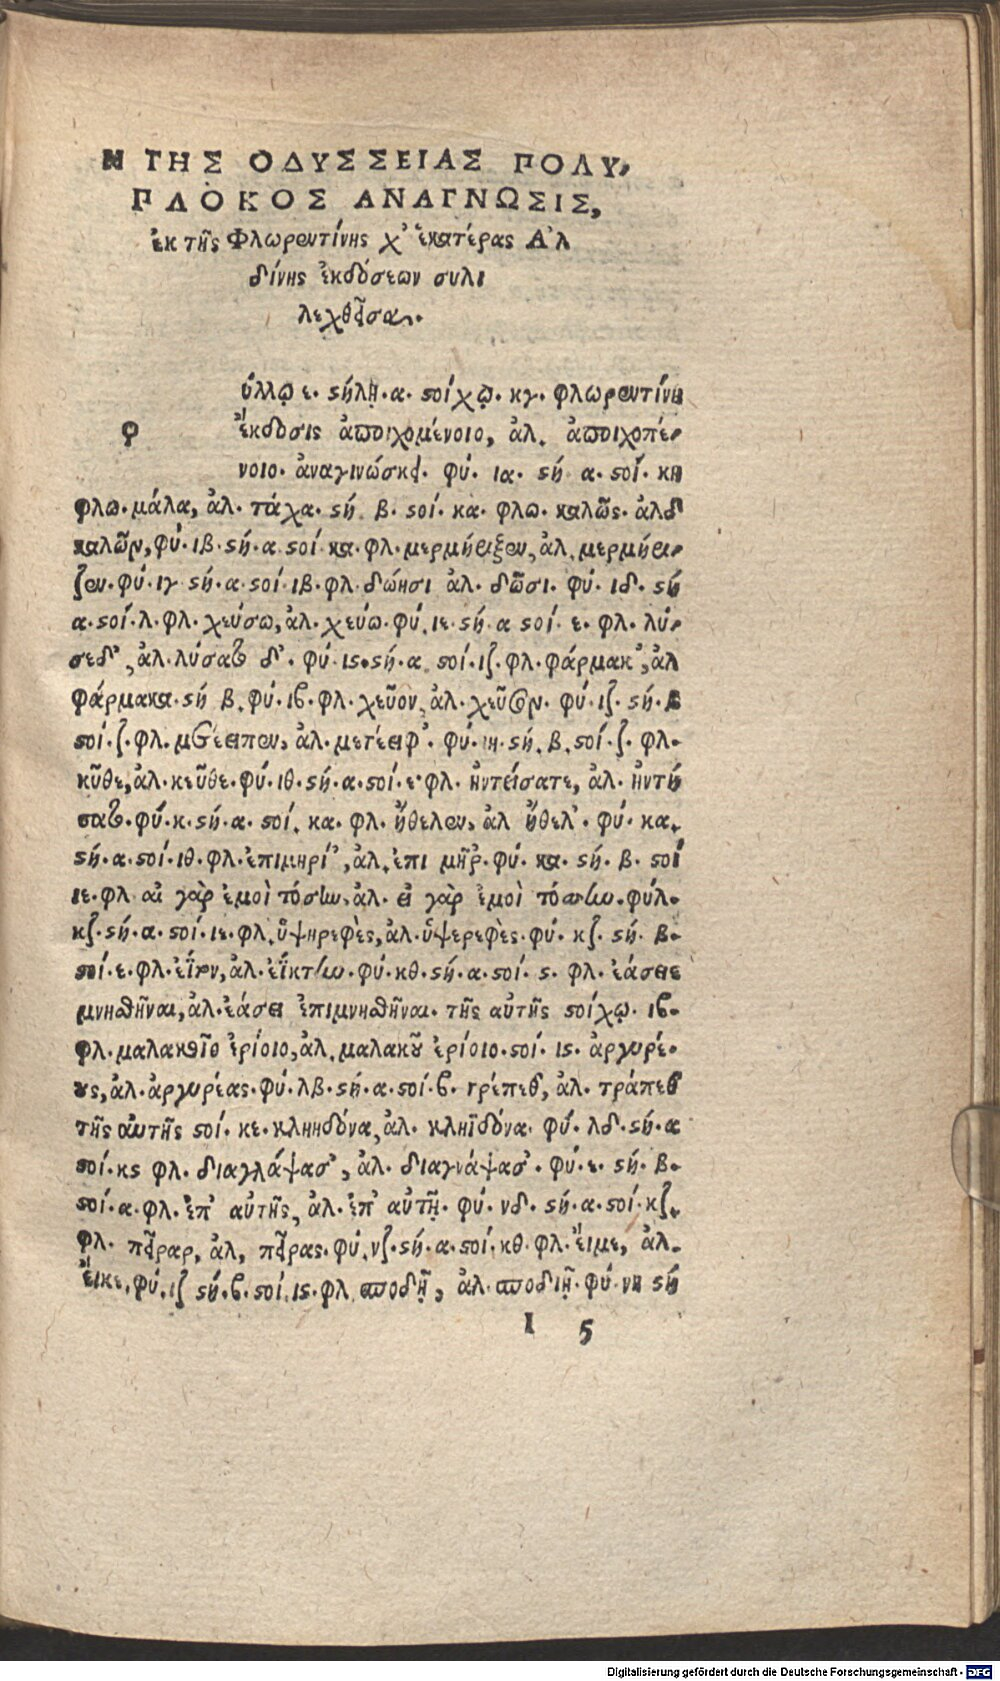 Η ΤΗΣ ΟΔΥΣΣΕΙΑΣ ΠΟΛΥ,
ΠΛΟΚΟΣ ΑΝΑΓΝΩΣΙΣ,
ἐκ τῆς Φλωρεντίνης χ' ἑκατέρας Α'λ
δίνης ἐκδόσεων συλι
λεχθεῖσαι.
ύλλῳ ε. ϛήλῃ. α. ϛοίχῳ. κγ. φλωρεντίνη
φ ἔκδοσις ἀποιχομένοιο, ἀλ. ἀποιχοπέ,
νοιο. ἀναγινώσκει. φύ. ια. ϛή α. ϛοί. κη
φλω. μάλα, ἀλ. τάχα. ϛή. β. ϛοί. κα. φλω. καλῶς. ἀλδ
καλῶν, φύ. ιβ. ϛή. α. ϛοί κα. φλ. μερμήριξεν, ἀλ. μερμήρι,
ζεν. φύ. ιγ ϛή. α. ϛοί. ιβ. φλ. δώησι ἀλ. δῶσι. φύ. ιδ. ϛή
α. ϛοί. λ. φλ. χεύσω, ἀλ. χεύω. φύ. ιε. ϛή. α ϛοί. ε. φλ. λύ,
σεδ', ἀλ. λύσατε δ'. φύ. ιϛ. ϛή. α. ϛοί. ιζ. φλ. φάρμακ', ἀλ
φάρμακα. ϛή β. φύ. ιϐ. φλ. χεῦον, ἀλ. χεῦσεν. φύ. ιζ. ϛή. β
ϛοί. ζ. φλ. μετέειπεν, ἀλ. μετέειφ'. φύ. ιη. ϛή. β. ϛοί. ζ. φλ.
κῦθε, ἀλ. κεῦθε. φύ. ιθ. ϛή. α. ϛοί. ε. φλ. ἠντείσατε, ἀλ. ἠντή
σατε. φύ. κ. ϛή. α. ϛοί. κα. φλ. ἤθελεν, ἀλ ἤθελ'. φύ. κα.
ϛή. α. ϛοί. ιθ. φλ. ἐπιμηρί', ἀλ. ἐπι μῆρ. φύ. κα. ϛή. β. ϛοί
ιε. φλ αἰ γὰρ ἐμοὶ τόσην, ἀλ. εἰ γὰρ ἐμοὶ τόσσην. φύλ.
κζ. ϛή. α. ϛοί. ιε. φλ. ὕψηρεφὲς, ἀλ. ὕψερεφὲς. φύ. κζ. ϛή. β.
ϛοί. ε. φλ. ἐΐκτον, ἀλ. ἐΐκτην. φύ. κθ. ϛή. α. ϛοί. ϛ. φλ. ἐάσεεε
μνηθῆναι, ἀλ. ἐάσει ἐπιμνηθῆναι. τῆς αὐτῆς ϛοίχῳ. ιϐ.
φλ. μαλακοῖο ἐρίοιο, ἀλ. μαλακοῦ ἐρίοιο. ϛοί. ιϛ. ἀργυρέ.
ους, ἀλ. ἀργυρέας. φύ. λβ. ϛή. α. ϛοί. ϐ. τρέπετο, ἀλ. τράπετο
τῆς αὐτῆς ϛοί. κε. κληηδόνα, ἀλ. κληϊδόνα. φύ. λδ. ϛή. α
ϛοί. κϛ φλ. διαγλάψασ', ἀλ. διαγνάψασ'. φύ. ε. ϛή. β.
ϛοί. α. φλ. ἐπ' αὐτῆς, ἀλ. ἐπ' αὐτῇ. φύ. νδ. ϛή. α. ϛοί. κζ.
φλ. πεῖραρ, ἀλ, πεῖρας. φύ. νζ. ϛή. α. ϛοί. κθ. φλ. εἶμε, ἀλ.
εἶκε. φύ. ιζ ϛή. ϐ. ϛοί. ιϛ. φλ ποδῇ, ἀλ. ποδιῇ. φύ. νη ϛή
I 5
Digitalisierung gefördert durch die Deutsche Forschungsgemeinschaft - DFG